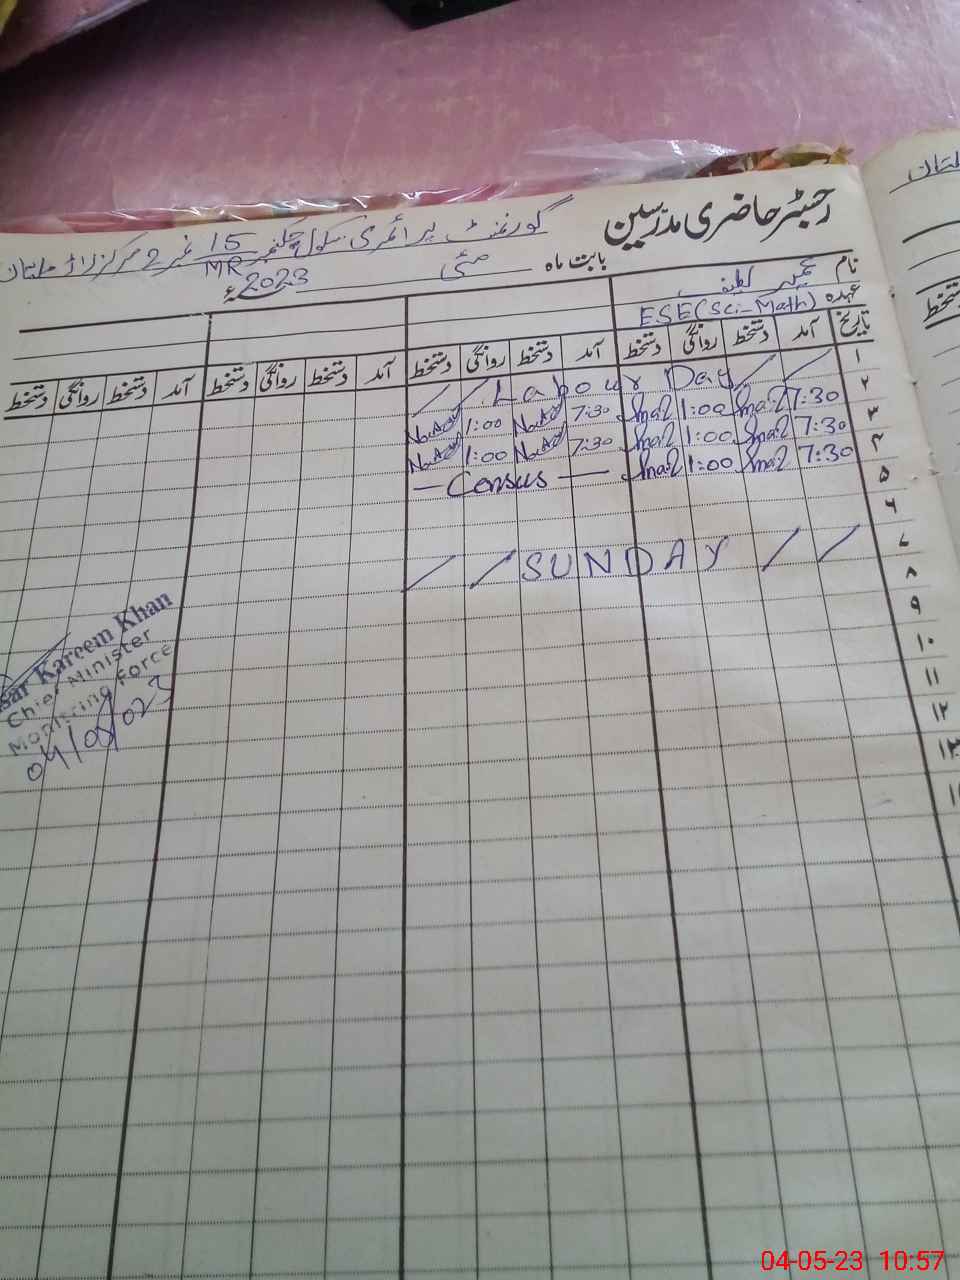 رجسٹر حاضری مدرسین
گورنمنٹ پرائمری سکول چک نمبر 15/MR نمبر 2 مرکز لاڑ ملتان
بابت ماہ مئی 2023ء
نام عمیر لطیف
عہدہ ESE (Sci-Math)
تاریخ آمد دستخط روانگی دستخط آمد دستخط روانگی دستخط آمد دستخط روانگی دستخط آمد دستخط روانگی دستخط
۱ Labour Day
۲ 7:30 1:00 7:30 1:00
۳ 7:30 1:00 7:30 1:00
۴ 7:30 1:00 — Census —
۵
۶
۷ / / SUNDAY / /
۸
۹
۱۰
۱۱
۱۲
۱۳
sar Kareem Khan
Chief Minister
Monitring Force
04/05/023
دستخط
ملتان
04-05-23 10:57